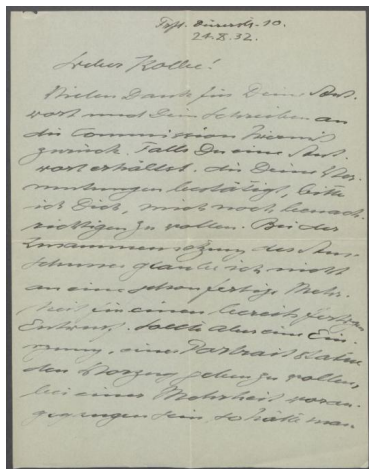 21.8.32.
Lieber Kolbe!
Vielen Dank für Deine Ant-
wort und Dein Schreiben an
die Commission hiermit
zurück. Falls Du eine Ant-
wort erhältst, die Deine Ver-
mutungen bestätigt, bitte
ich Dich, mich noch benach-
richtigen zu wollen. Bei der
Zusammensetzung des Aus-
schusses glaube ich nicht
an eine schon fertige Mehr-
heit für einen bereits fertigen
Entwurf. Sollte aber eine Ei-
nigung, einer Portrait Statue
den Vorzug geben zu wollen,
bei einer Mehrheit voran-
gegangen sein, so hätte man